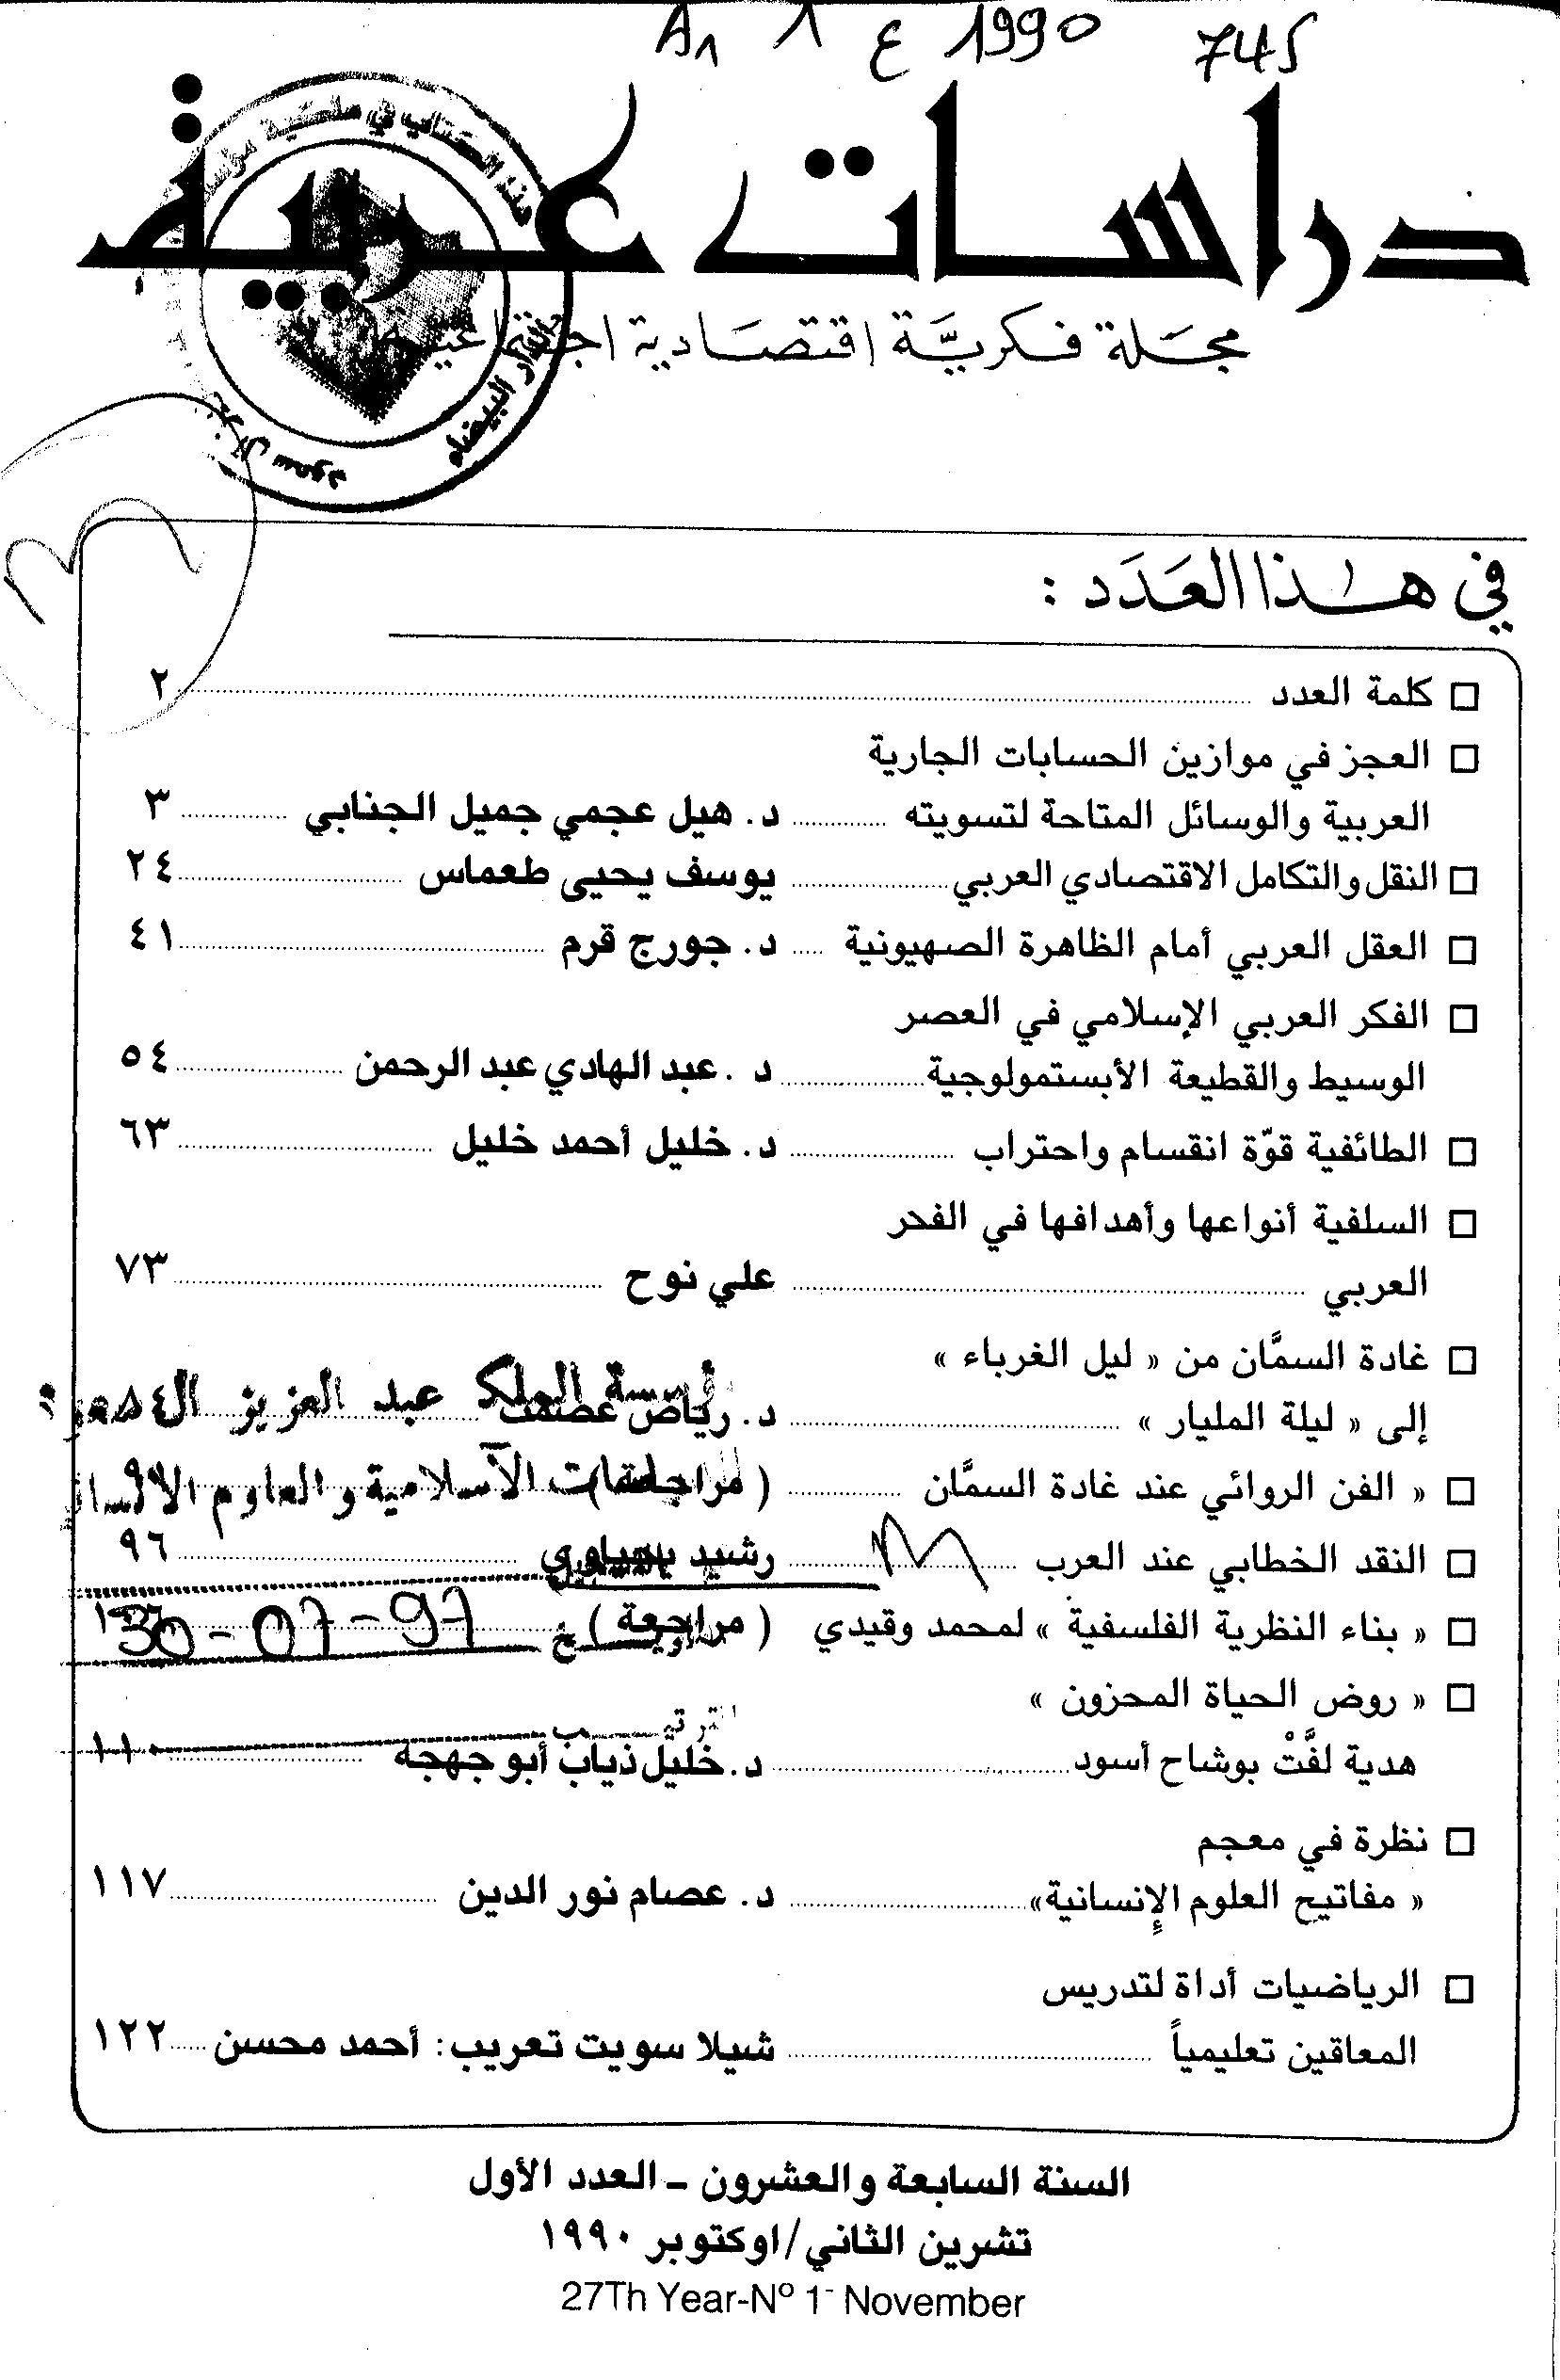 1990 745
دراسات عربية
مجلة فكريَّة اقتصادية اجتماعية
الدار البيضاء
في هذا العَدَد :
كلمة العدد ٢
العجز في موازين الحسابات الجارية
العربية والوسائل المتاحة لتسويته د. هيل عجمي جميل الجنابي ٣
النقل والتكامل الاقتصادي العربي يوسف يحيى طعماس ٢٤
العقل العربي أمام الظاهرة الصهيونية د. جورج قرم ٤١
الفكر العربي الإسلامي في العصر
الوسيط والقطيعة الأبستمولوجية د . عبد الهادي عبد الرحمن ٥٤
الطائفية قوّة انقسام واحتراب د. خليل أحمد خليل ٦٣
السلفية أنواعها وأهدافها في الفحر
العربي علي نوح ٧٣
غادة السمَّان من « ليل الغرباء »
إلى « ليلة المليار » د. رياض عصمت
مؤسسة الملك عبد العزيز آل سعود
« الفن الروائي عند غادة السمَّان ( مراجعة )
للدراسات الاسلامية والعلوم الانسانية
النقد الخطابي عند العرب رشيد يحياوي ٩٦
« بناء النظرية الفلسفية » لمحمد وقيدي ( مراجعة )
30-07-97
« روض الحياة المحزون »
الترتيب
هدية لفَّتْ بوشاح أسود د. خليل ذياب أبو جهجه ١١٠
نظرة في معجم
« مفاتيح العلوم الإنسانية» د. عصام نور الدين ١١٧
الرياضيات أداة لتدريس
المعاقين تعليمياً شيلا سويت تعريب: أحمد محسن ١٢٢
السنة السابعة والعشرون - العدد الأول
تشرين الثاني/اوكتوبر ١٩٩٠
27Th Year-Nº 1- November